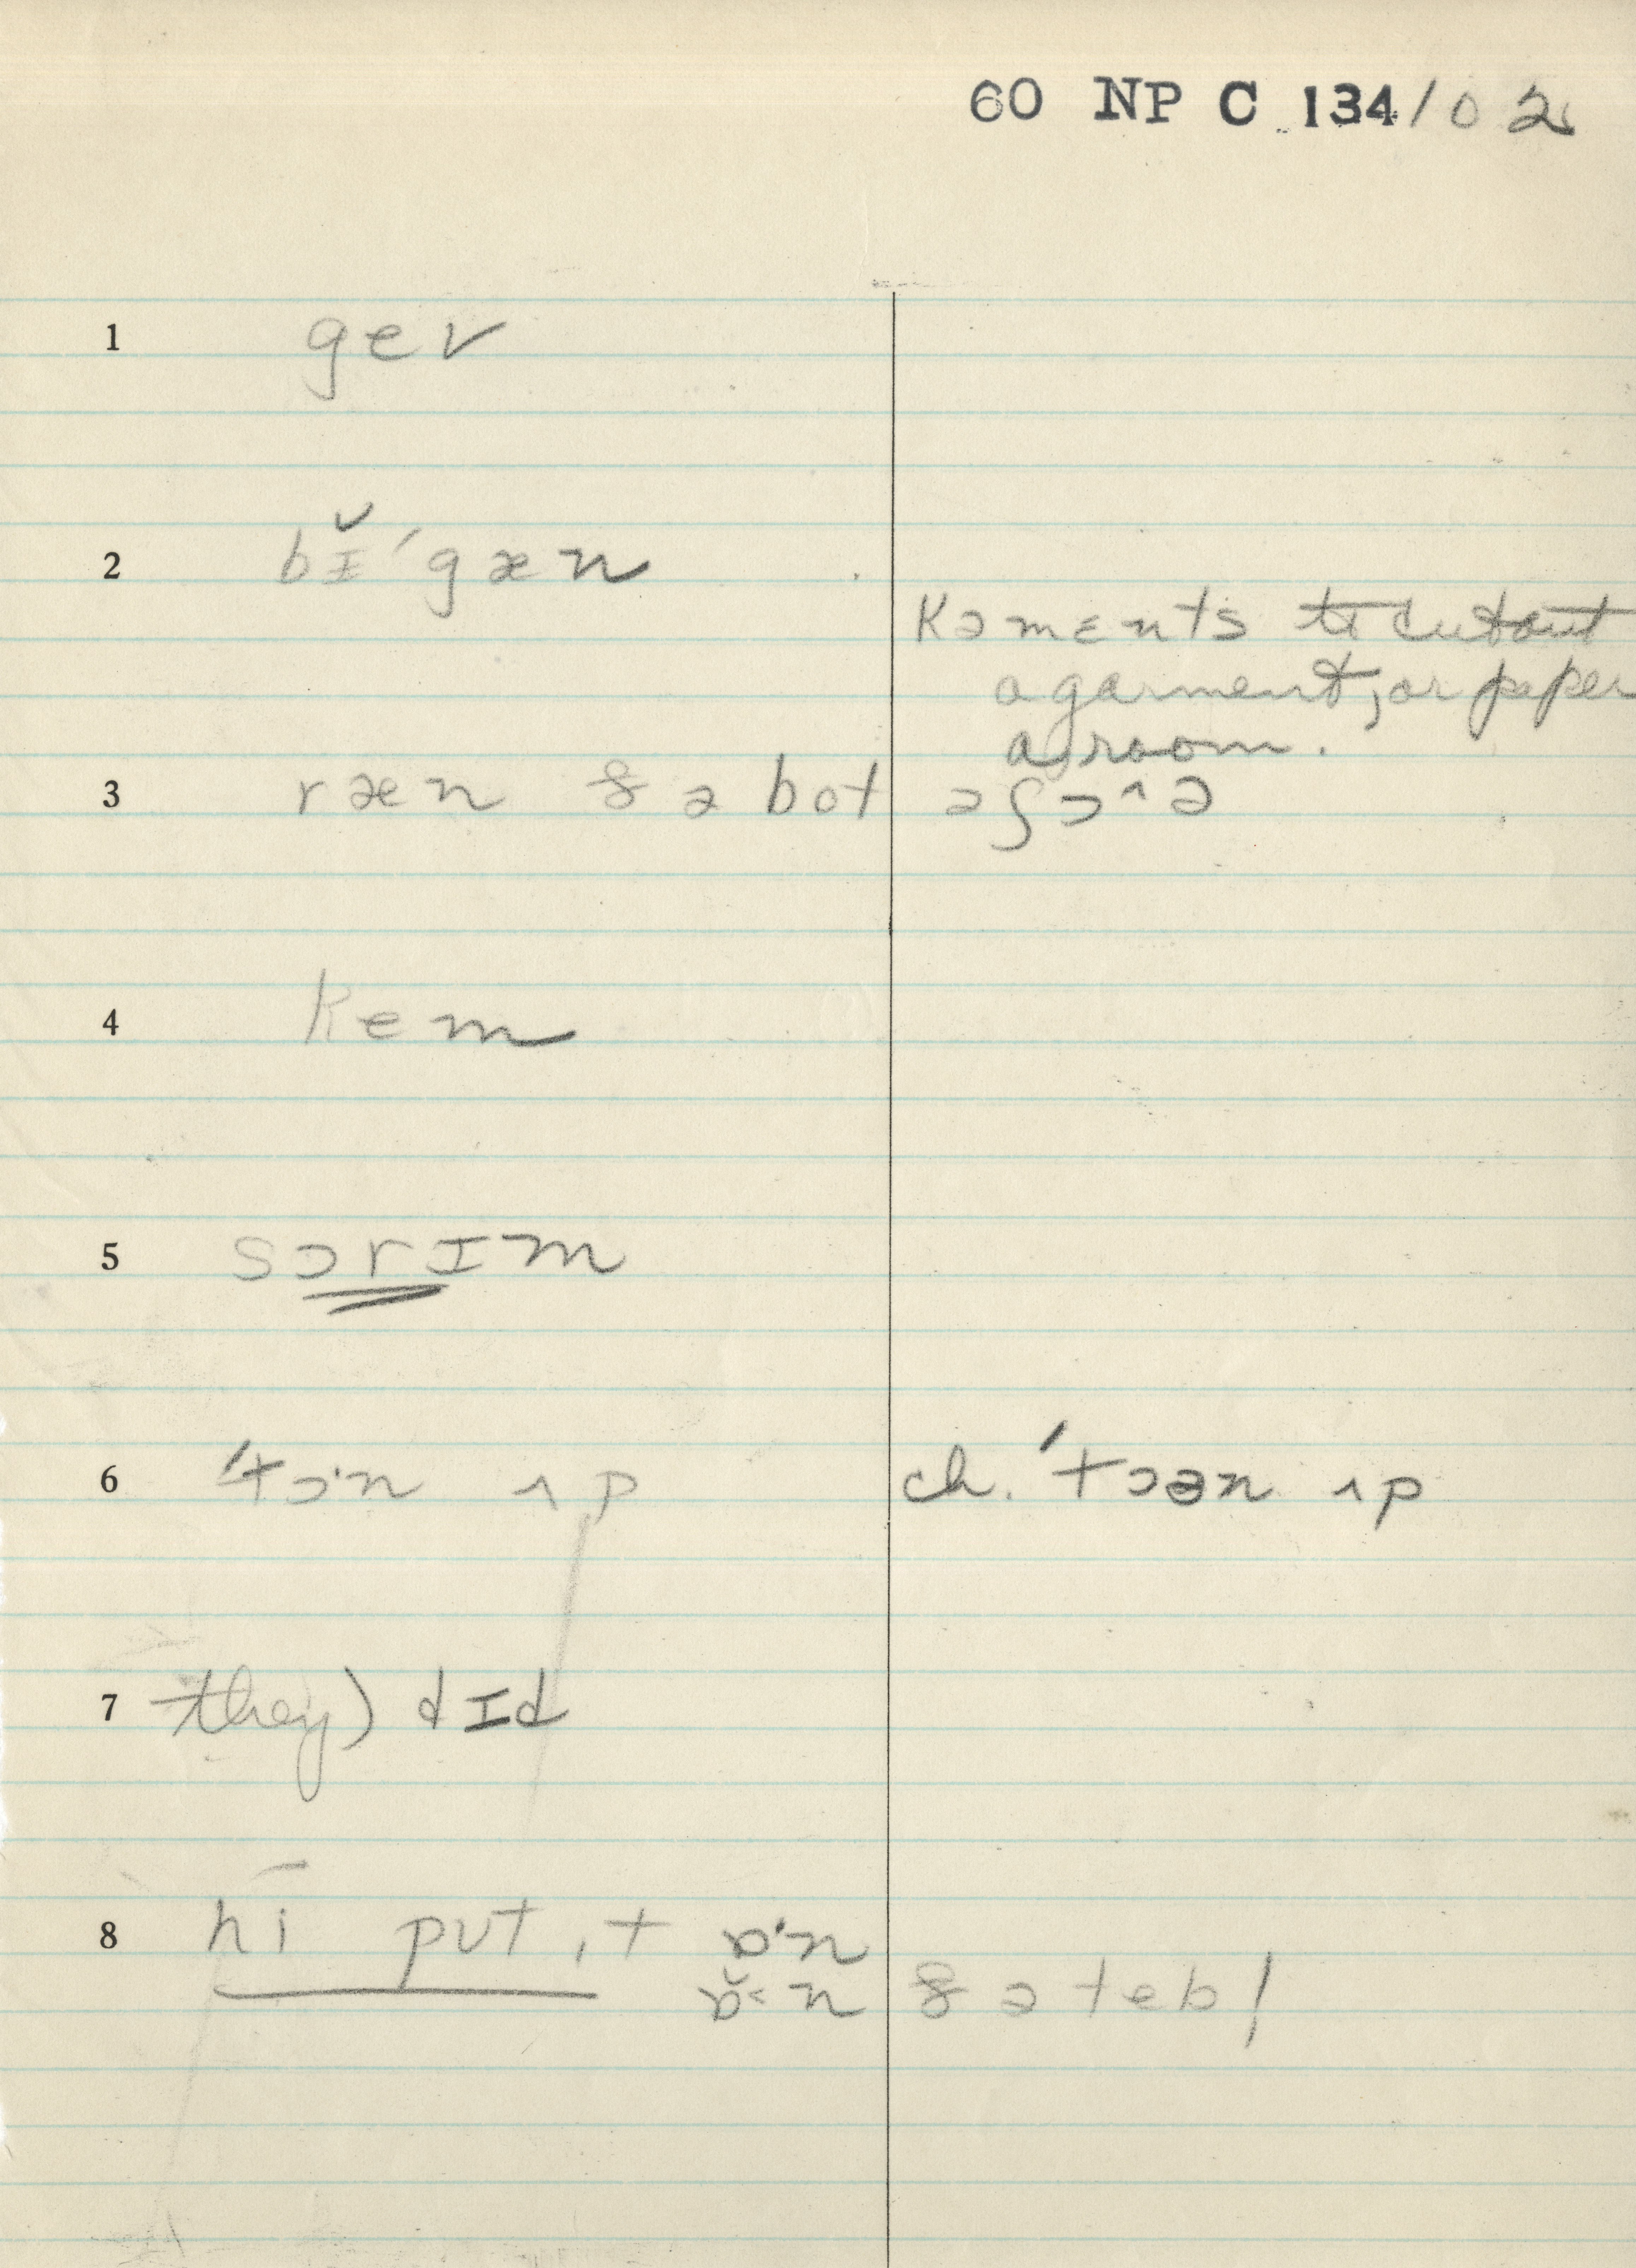 60 NP C 134/02
1 gev
2 bɪ̆ˈgæn
kəmɛnts to cut out
a garment, or paper
a room.
3 ræn ðə bot əʃɔ^ə
4 kem
5 sɔrɪm
6 ˈtɔ·n ʌp ch. ˈtɔən ʌp
7 they) dɪd
8 hi pʊt ɪt ɒ·n
ɒ̆˂n ðə tebl